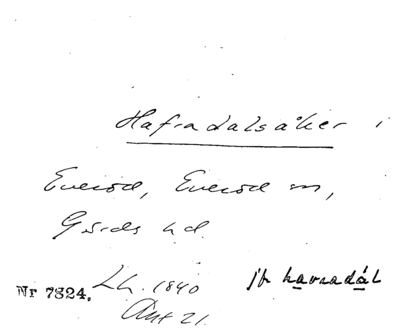 Hafradalsåker i
Everöd, Everöd sn,
Gärds hd.
Nr 7824. Lh. 1840 jfr havradál
Akt 21.